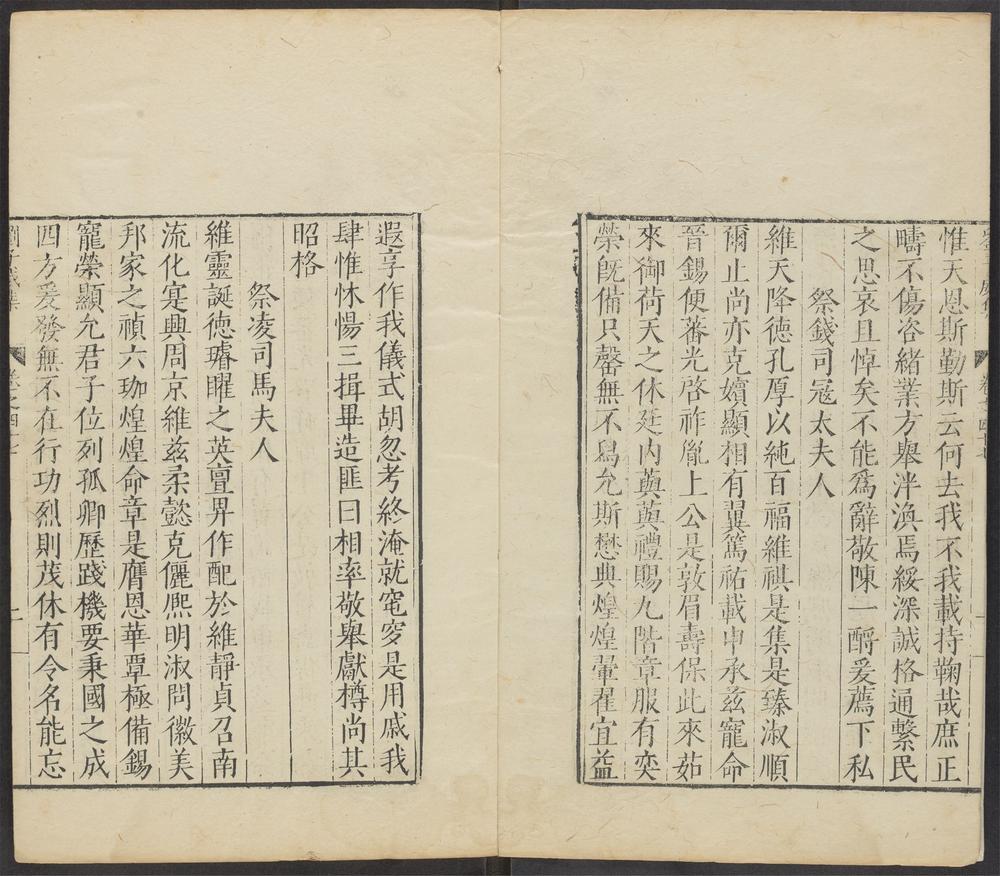 惟天恩斯勤斯云何去我不我載持鞠哉庶正
疇不傷咨緒業方舉泮渙焉綏深誠格通繫民
之思哀且悼矣不能爲辭敬陳一酹爰薦下私
祭錢司寇太夫人
維天降德孔厚以純百福維祺是集是臻淑順
爾止尚亦克嬪顯相有翼篤祐載申承茲寵命
晉錫便蕃光啓祚胤上公是敦眉壽保此來茹
來御荷天之休廷內蕆蕆禮賜九階章服有奕
榮旣備只罄無不爲允斯懋典煌煌翬翟宜益
遐享作我儀式胡忽考終淹就窀穸是用戚我
肆惟怵惕三揖畢造匪日相率敬舉獻樽尚其
昭格
祭凌司馬夫人
維靈誕徳璿曜之英亶畀作配於維靜貞召南
流化寔興周京維茲柔懿克儷熈明淑問徽美
邦家之禎六珈煌煌命章是膺恩華覃極備錫
寵榮顯允君子位列孤卿歷踐機要秉國之成
四方爰發無不在行功烈則茂休有令名能忘